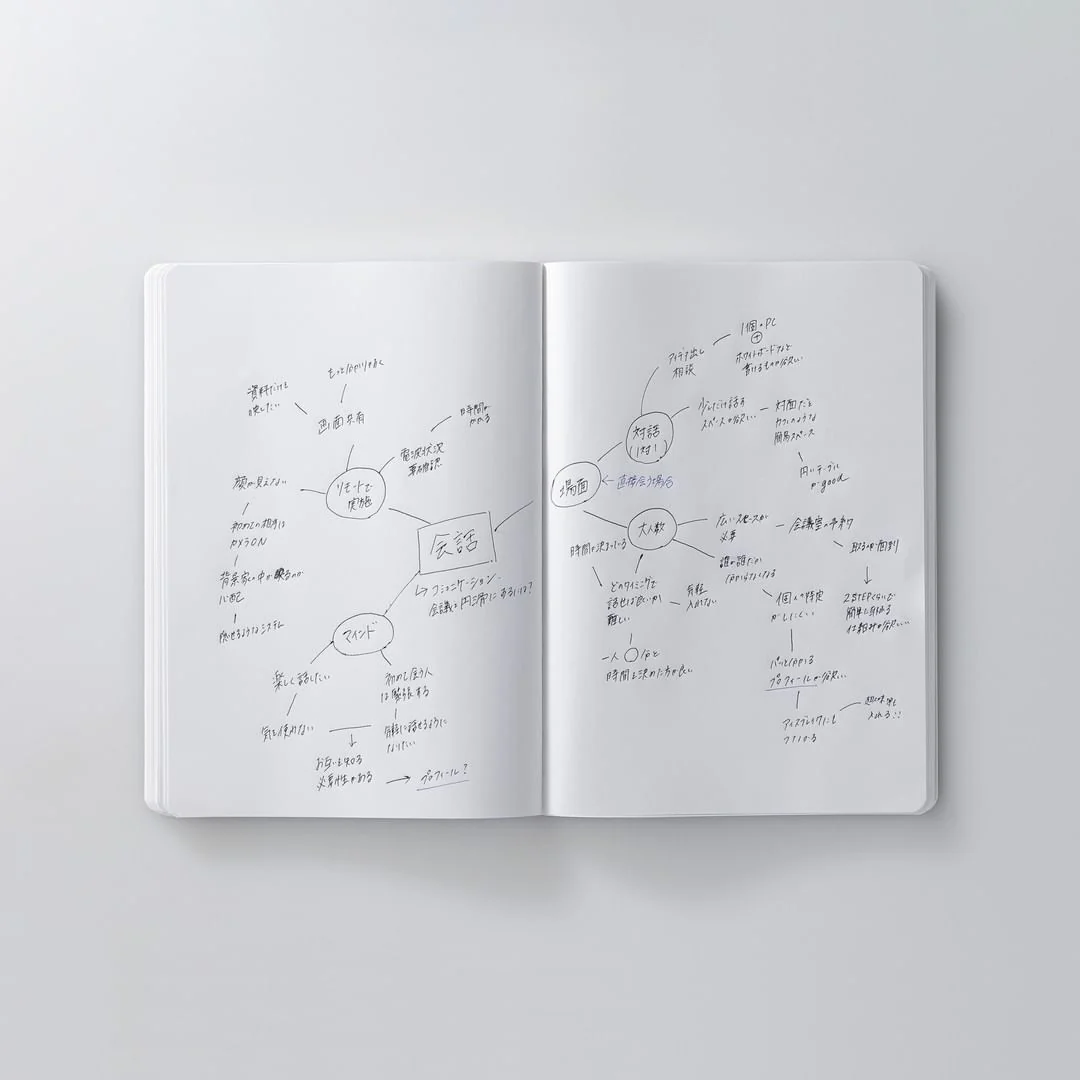 資料だけを
映したい
もっと分かりやすく
画面共有
時間が
かかる
電波状況
要確認
リモートで
実施
顔が見えない
初めての相手は
カメラON
背景家の中が映るのが
心配
隠せるようなシステム
会話
↳コミュニケーション・
会議を円滑にするには?
マインド
楽しく話したい
気を使わない
初めて会う人
は緊張する
気軽に話せるように
なりたい
お互いを知る
必要性がある
→ プロフィール?
場面
← 直接会う場合
対話
(1対1)
アイデア出し
相談
1個のPC
+
ホワイトボードなど
書けるものが欲しい
少しだけ話す
スペースが欲しい
対面だと
カフェのような
簡易スペース
円いテーブル
がgood
大人数
広いスペースが
必要
会議室の予約
取るのが面倒
2STEPくらいで
簡単に取れる
仕組みが欲しい
誰が誰だか
分からなくなる
個人の特定
がしにくい
パッと分かる
プロフィールが欲しい
アイスブレイクにも
つながる
趣味も
入れる!!
時間が決まっている
どのタイミングで
話せば良いか
難しい
気軽に
入れない
一人○分と
時間を決めた方が良い